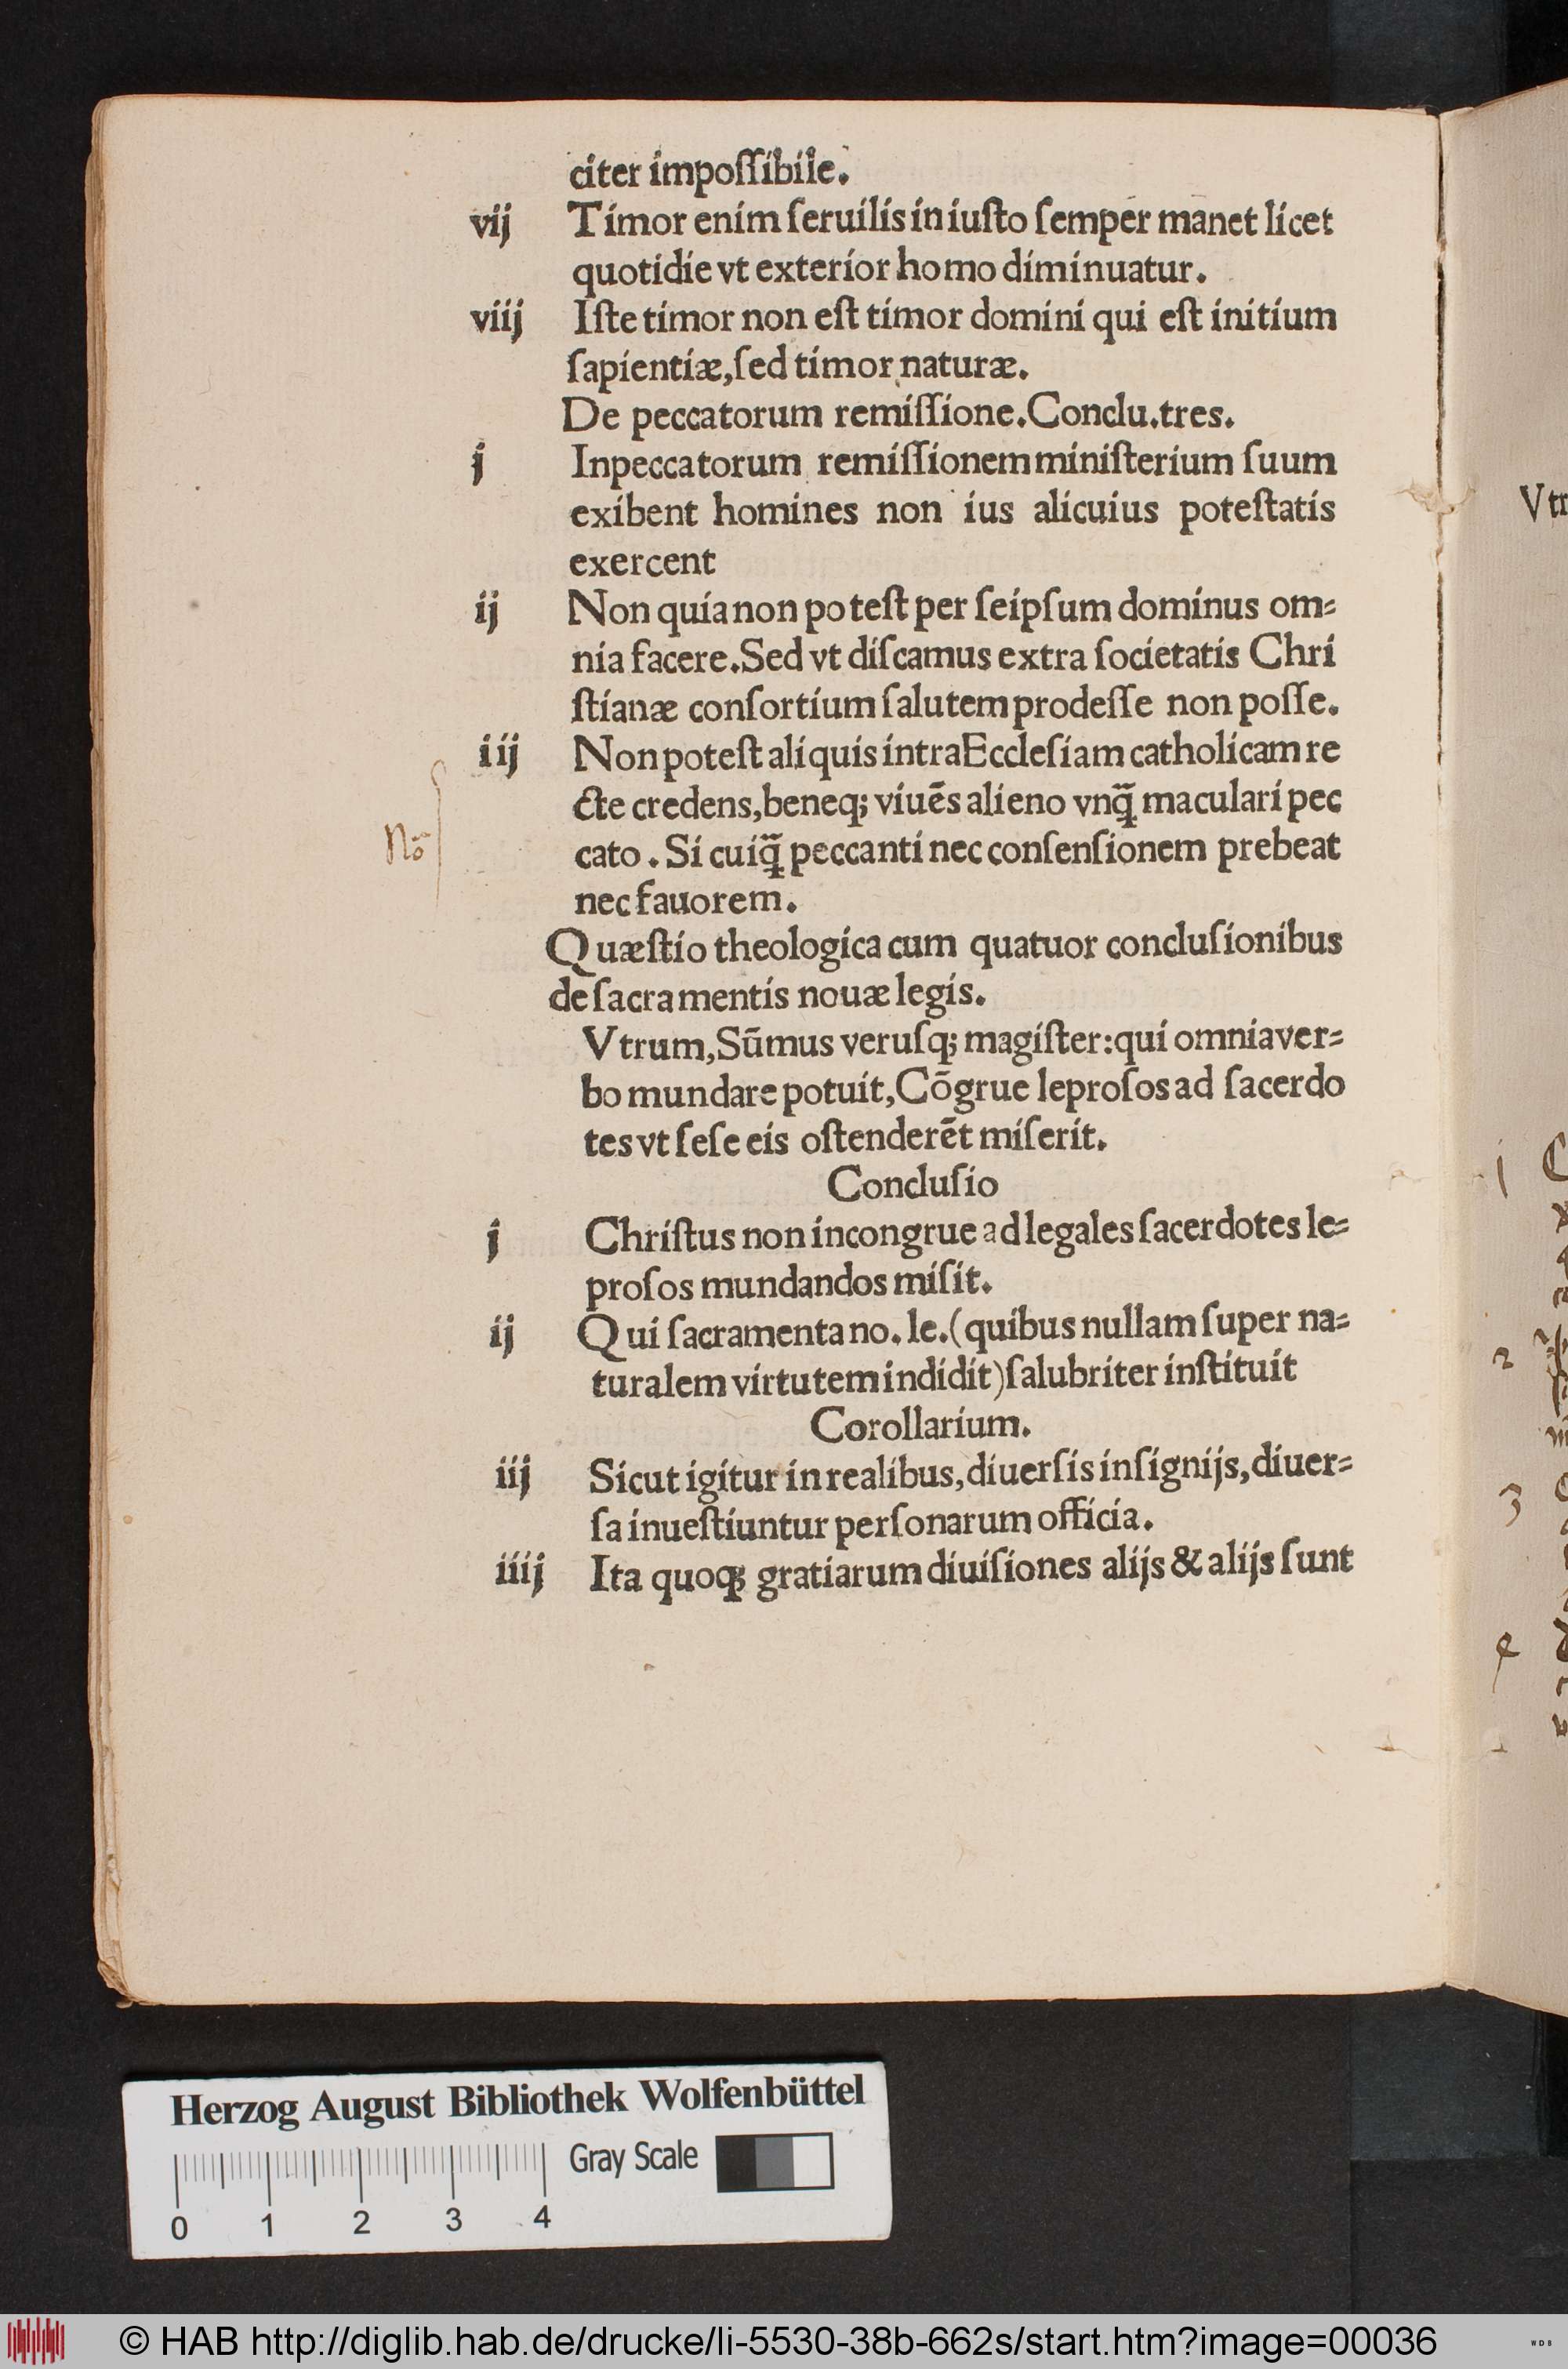 citer impoſſibile.
vij Timor enim ſeruilis in iuſto ſemper manet licet
quotidie vt exterior homo diminuatur.
viij Iſte timor non eſt timor domini qui eſt initium
ſapientiæ, ſed timor naturæ.
De peccatorum remiſſione. Conclu. tres.
j In peccatorum remiſſionem miniſterium ſuum
exibent homines non ius alicuius poteſtatis
exercent
ij Non quia non poteſt per ſeipſum dominus om⸗
nia facere. Sed vt diſcamus extra ſocietatis Chri
ſtianæ conſortium ſalutem prodeſſe non poſſe.
iij Non poteſt aliquis intra Eccleſiam catholicam re
cte credens, beneq; viuēs alieno vnq̄̃ maculari pec
cato. Si cuiq̄̃ peccanti nec conſenſionem prebeat
nec fauorem.
Nō
Quæſtio theologica cum quatuor concluſionibus
de ſacramentis nouæ legis.
Vtrum, Sūmus veruſq; magiſter: qui omnia ver⸗
bo mundare potuit, Cōgrue leproſos ad ſacerdo
tes vt ſeſe eis oſtenderēt miſerit.
Concluſio
j Chriſtus non incongrue ad legales ſacerdotes le⸗
proſos mundandos miſit.
ij Qui ſacramenta no. le. (quibus nullam ſuper na⸗
turalem virtutem indidit) ſalubriter inſtituit
Corollarium.
iij Sicut igitur in realibus, diuerſis inſignijs, diuer⸗
ſa inueſtiuntur perſonarum officia.
iiij Ita quoq; gratiarum diuiſiones alijs & alijs ſunt
Vtr
1
2
3
4
Herzog August Bibliothek Wolfenbüttel
Gray Scale
0 1 2 3 4
© HAB http://diglib.hab.de/drucke/li-5530-38b-662s/start.htm?image=00036
WDB